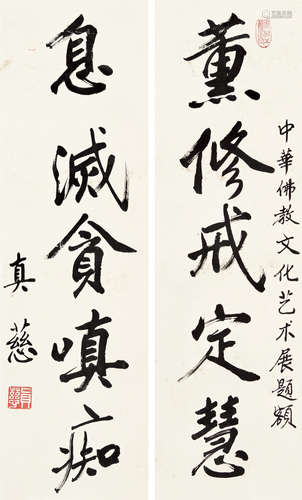 中華佛教文化艺术展題額
薰修戒定慧
息滅貪嗔痴
真慈